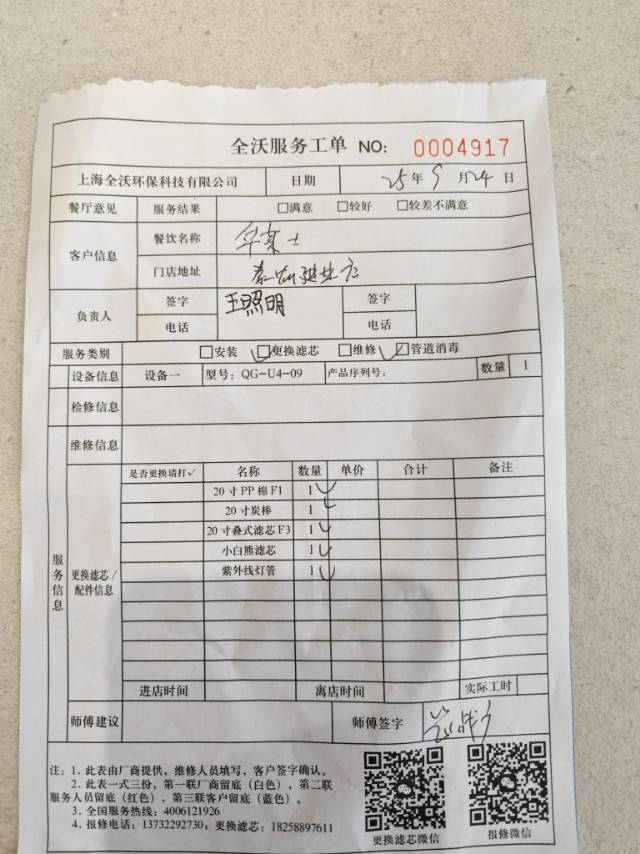 全沃服务工单 NO: 0004917
上海全沃环保科技有限公司 日期 25年9月24日
餐厅意见 服务结果 □满意 □较好 □较差不满意
客户信息 餐饮名称 华莱士
门店地址
负责人 签字 王照明 签字
电话 电话
服务类别 □安装 ☑更换滤芯 □维修 ☑管道消毒
设备信息 设备一 型号: QG-U4-09 产品序列号: 数量 1
检修信息
维修信息
服务信息 更换滤芯/配件信息 是否更换请打✓ 名称 数量 单价 合计 备注
20寸PP棉F1 1 ✓
20寸炭棒 1 ✓
20寸叠式滤芯F3 1 ✓
小白熊滤芯 1 ✓
紫外线灯管 1 ✓
进店时间 离店时间 实际工时
师傅建议 师傅签字
注: 1、此表由厂商提供, 维修人员填写, 客户签字确认。
2、此表一式三份, 第一联厂商留底(白色), 第二联
服务人员留底(红色), 第三联客户留底(蓝色)。
3、全国服务热线: 4006121926
4、报修电话: 13732292730; 更换滤芯: 18258897611
更换滤芯微信 报修微信